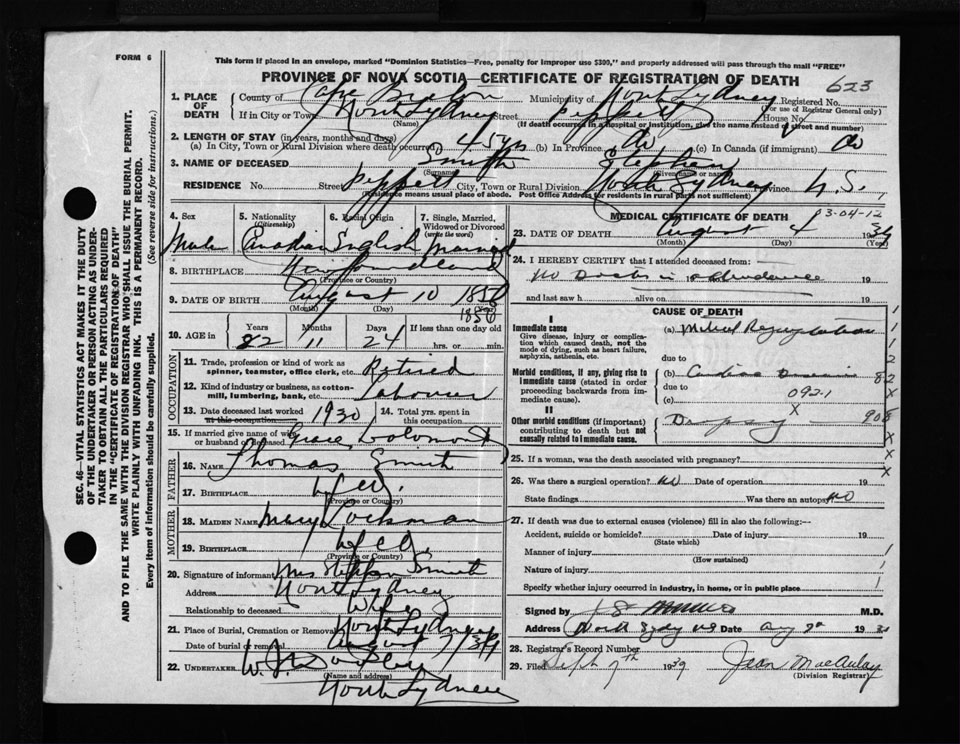 FORM 6
This form if placed in an envelope, marked "Dominion Statistics—Free, penalty for improper use $300," and properly addressed will pass through the mail "FREE"
PROVINCE OF NOVA SCOTIA—CERTIFICATE OF REGISTRATION OF DEATH
623
1. PLACE OF DEATH
County of Cape Breton Municipality of North Sydney Registered No.
(For use of Registrar General only)
If in City or Town North Sydney Street House No.
(Name) (If death occurred in a hospital or institution, give the name instead of street and number)
2. LENGTH OF STAY (in years, months and days)
(a) In City, Town or Rural Division where death occurred 45 yrs (b) In Province (c) In Canada (if immigrant)
3. NAME OF DECEASED Smith Stephen
(Surname) (Given name or names)
RESIDENCE No. Street City, Town or Rural Division North Sydney Province N.S.
(Residence means usual place of abode. Post Office Address for residents in rural parts not sufficient)
4. Sex 5. Nationality (Citizenship) 6. Racial Origin 7. Single, Married, Widowed or Divorced (write the word)
Male Canadian English Married
8. BIRTHPLACE Newfoundland
(Province or Country)
9. DATE OF BIRTH August 10 1856
(Month) (Day) (Year)
1856
10. AGE in Years Months Days If less than one day old
82 11 24 hrs. or min.
OCCUPATION
11. Trade, profession or kind of work as spinner, teamster, office clerk, etc. Retired
12. Kind of industry or business, as cotton-mill, lumbering, bank, etc. Labourer
13. Date deceased last worked at this occupation 1930 14. Total yrs. spent in this occupation
15. If married give name of wife or husband of deceased Grace
FATHER
16. Name Thomas Smith
17. Birthplace Nfld.
(Province or Country)
MOTHER
18. MAIDEN NAME Mary
19. BIRTHPLACE Nfld
(Province or Country)
20. Signature of informant Mrs Stephen Smith
Address North Sydney
Relationship to deceased Wife
21. Place of Burial, Cremation or Removal North Sydney
Date of burial or removal August 7/39
22. UNDERTAKER
(Name and address)
North Sydney
MEDICAL CERTIFICATE OF DEATH
3-04-12
23. DATE OF DEATH August 4 1939
(Month) (Day) (Year)
24. I HEREBY CERTIFY that I attended deceased from:
No Doctor in attendance 19
and last saw h alive on 19
CAUSE OF DEATH
I
Immediate cause
Give disease, injury or complication which caused death, not the mode of dying, such as heart failure, asphyxia, asthenia, etc.
(a) Mitral Regurgitation
due to
Morbid conditions, if any, giving rise to immediate cause (stated in order proceeding backwards from immediate cause).
(b) Cardiac
due to
092.1
(c)
II
Other morbid conditions (if important) contributing to death but not causally related to immediate cause.
Dropsy
25. If a woman, was the death associated with pregnancy?
26. Was there a surgical operation? No Date of operation 19
State findings Was there an autopsy? No
27. If death was due to external causes (violence) fill in also the following:—
Accident, suicide or homicide? Date of injury 19
(State which)
Manner of injury
(How sustained)
Nature of injury
Specify whether injury occurred in industry, in home, or in public place
Signed by M.D.
Address North Sydney NS Date Aug 1939
28. Registrar's Record Number
29. Filed Sept 7th 1939 Jean MacAulay
(Division Registrar)
SEC. 46—VITAL STATISTICS ACT MAKES IT THE DUTY
OF THE UNDERTAKER OR PERSON ACTING AS UNDER-
TAKER TO OBTAIN ALL THE PARTICULARS REQUIRED
IN THE "CERTIFICATE OF REGISTRATION OF DEATH"
AND TO FILE THE SAME WITH THE DIVISION REGISTRAR WHO SHALL ISSUE THE BURIAL PERMIT.
WRITE PLAINLY WITH UNFADING INK. THIS IS A PERMANENT RECORD.
Every item of information should be carefully supplied. (See reverse side for instructions.)